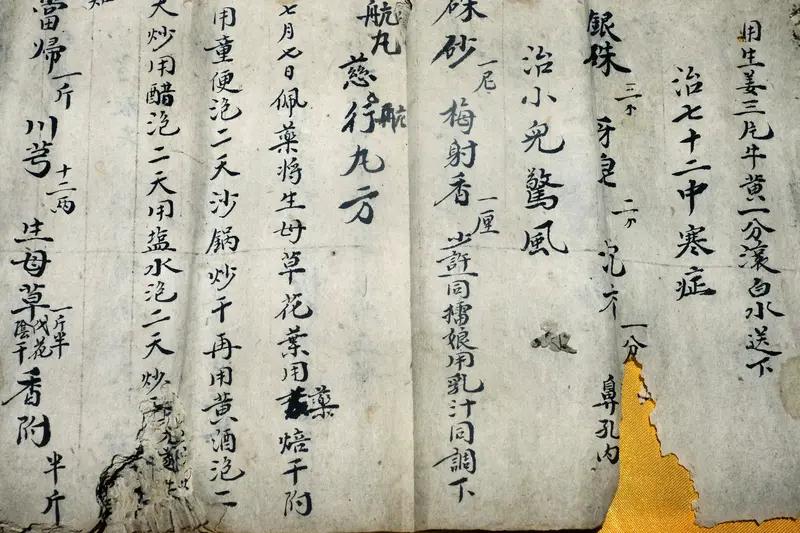 用生姜三片牛黄一分滚白水送下
治七十二中寒症
銀硃 三个 牙皂 二分 一分 鼻孔内
治小児驚風
硃砂 一厘 梅射香 一厘 少許同擂娘用乳汁同調下
航丸
慈航行丸方
七月七日佩藥将生母草花葉用藥焙干附
用童便泡二天沙锅炒干再用黄酒泡二
天炒用醋泡二天用盐水泡二天炒
當帰 一斤 川芎 十二两 生母草 一斤半 花 陰干 香附 半斤